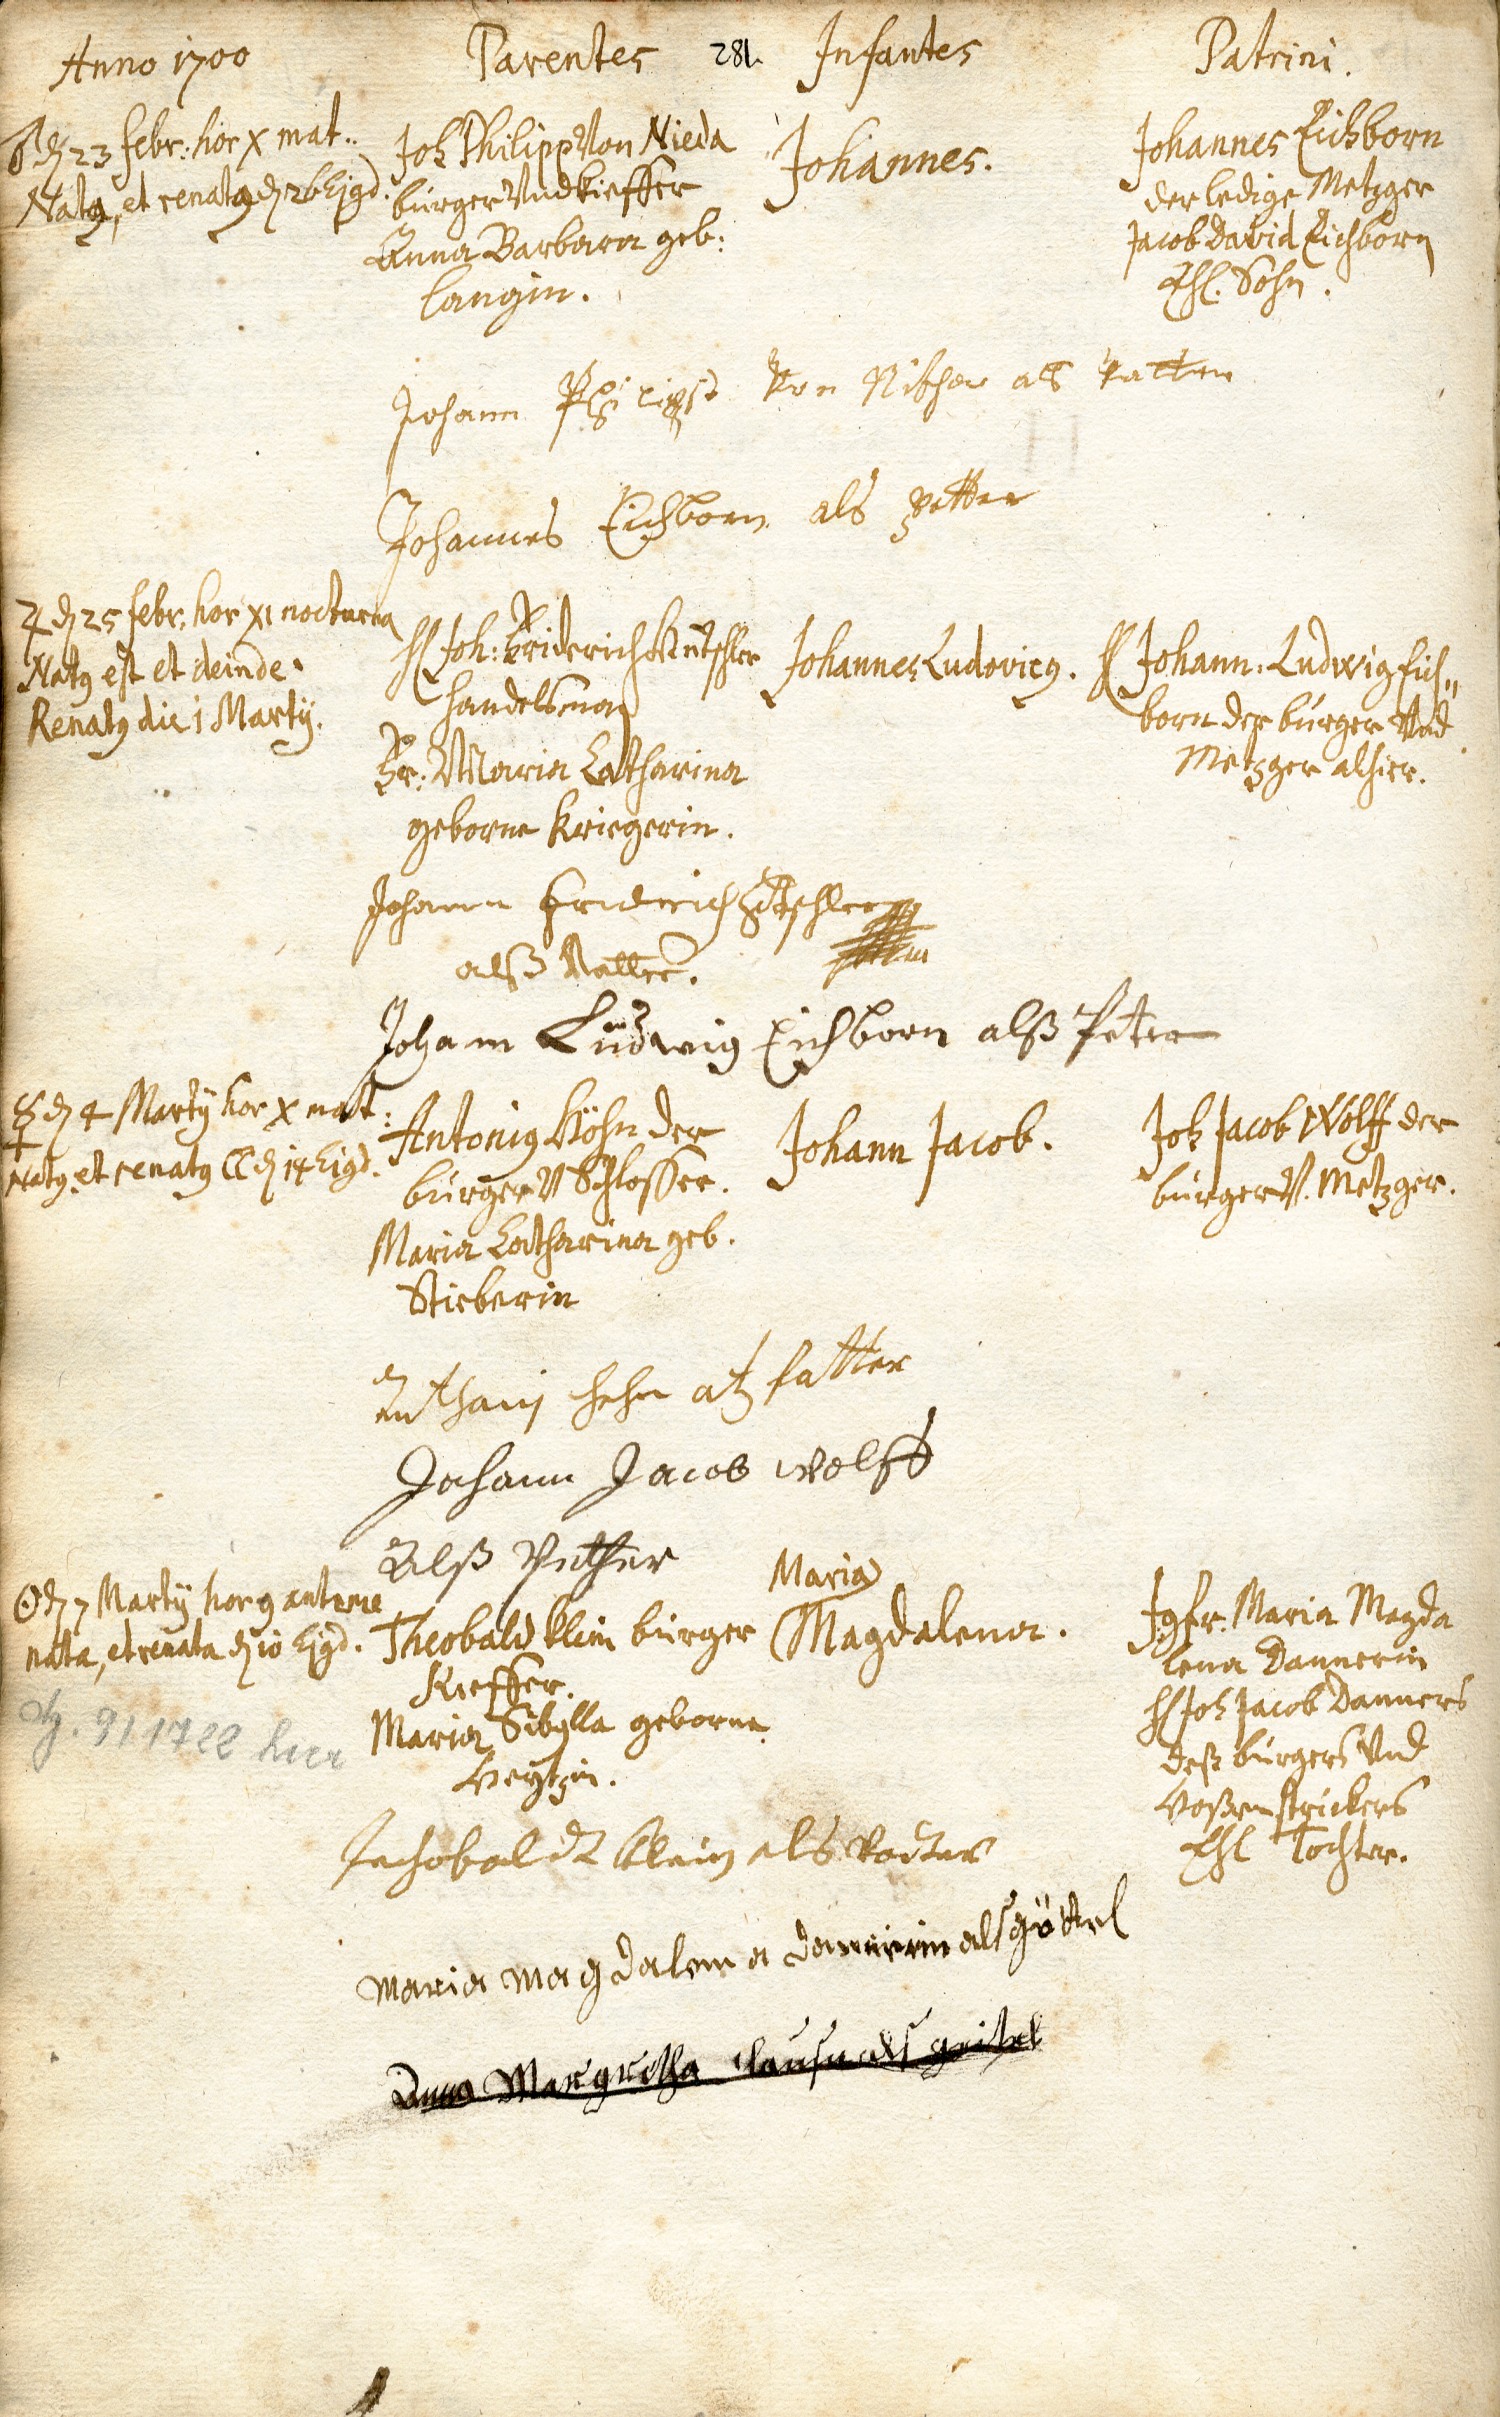 Anno 1700
Parentes
281.
Infantes
Patrini.
♂ d 23 febr: hor X mat:
Natq, et renatq d 26 Ejgd.
Joh Philipp Von Nieda
burger Vnd kieffer
Anna Barbara geb:
langin.
Johannes.
Johannes Eichborn
der ledige Metzger
Jacob David Eichborn
Ehl. Sohn.
Johann als Vatter
Johannes Eichborn als petter
♃ d 25 febr: hor XI nocturna
Natq est et deinde
Renatq die 1 Martÿ.
H Joh: Friderich
handelsman
Fr: Maria Catharina
geborne Kriegerin.
Johannes Ludovicq.
H Johann: Ludwig Eich„
born der burger Vnd
Metzger alhier.
Johann Friderich
alß Vatter.
Johann Ludwig Eichborn alß Peter
☿ d 4 Martÿ hor X mat:
Natq et renatq ☾ d 14 Ejgd.
Antoniq Höhn der
burger V Schlosser.
Maria Catharina geb.
Stieberin
Johann Jacob.
Joh Jacob Wolff der
burger V. Metzger.
hehn fatter
Johann Jacob wolff
Alß Petter
☉ d 7 Martÿ hor 9 antme
nata, et renata d 10 Ejgd.
Theobald klein burger
Kieffer.
Maria Sibÿlla geborne
Maria
Magdalena.
Jgfr. Maria Magda
lena Dannerin
H Joh Jacob Danners
deß burgers Vnd
Hoßenstrickers
Ehl Tochter.
klein als
Maria Magdalena dannerin als göttel
Anna Margretha als